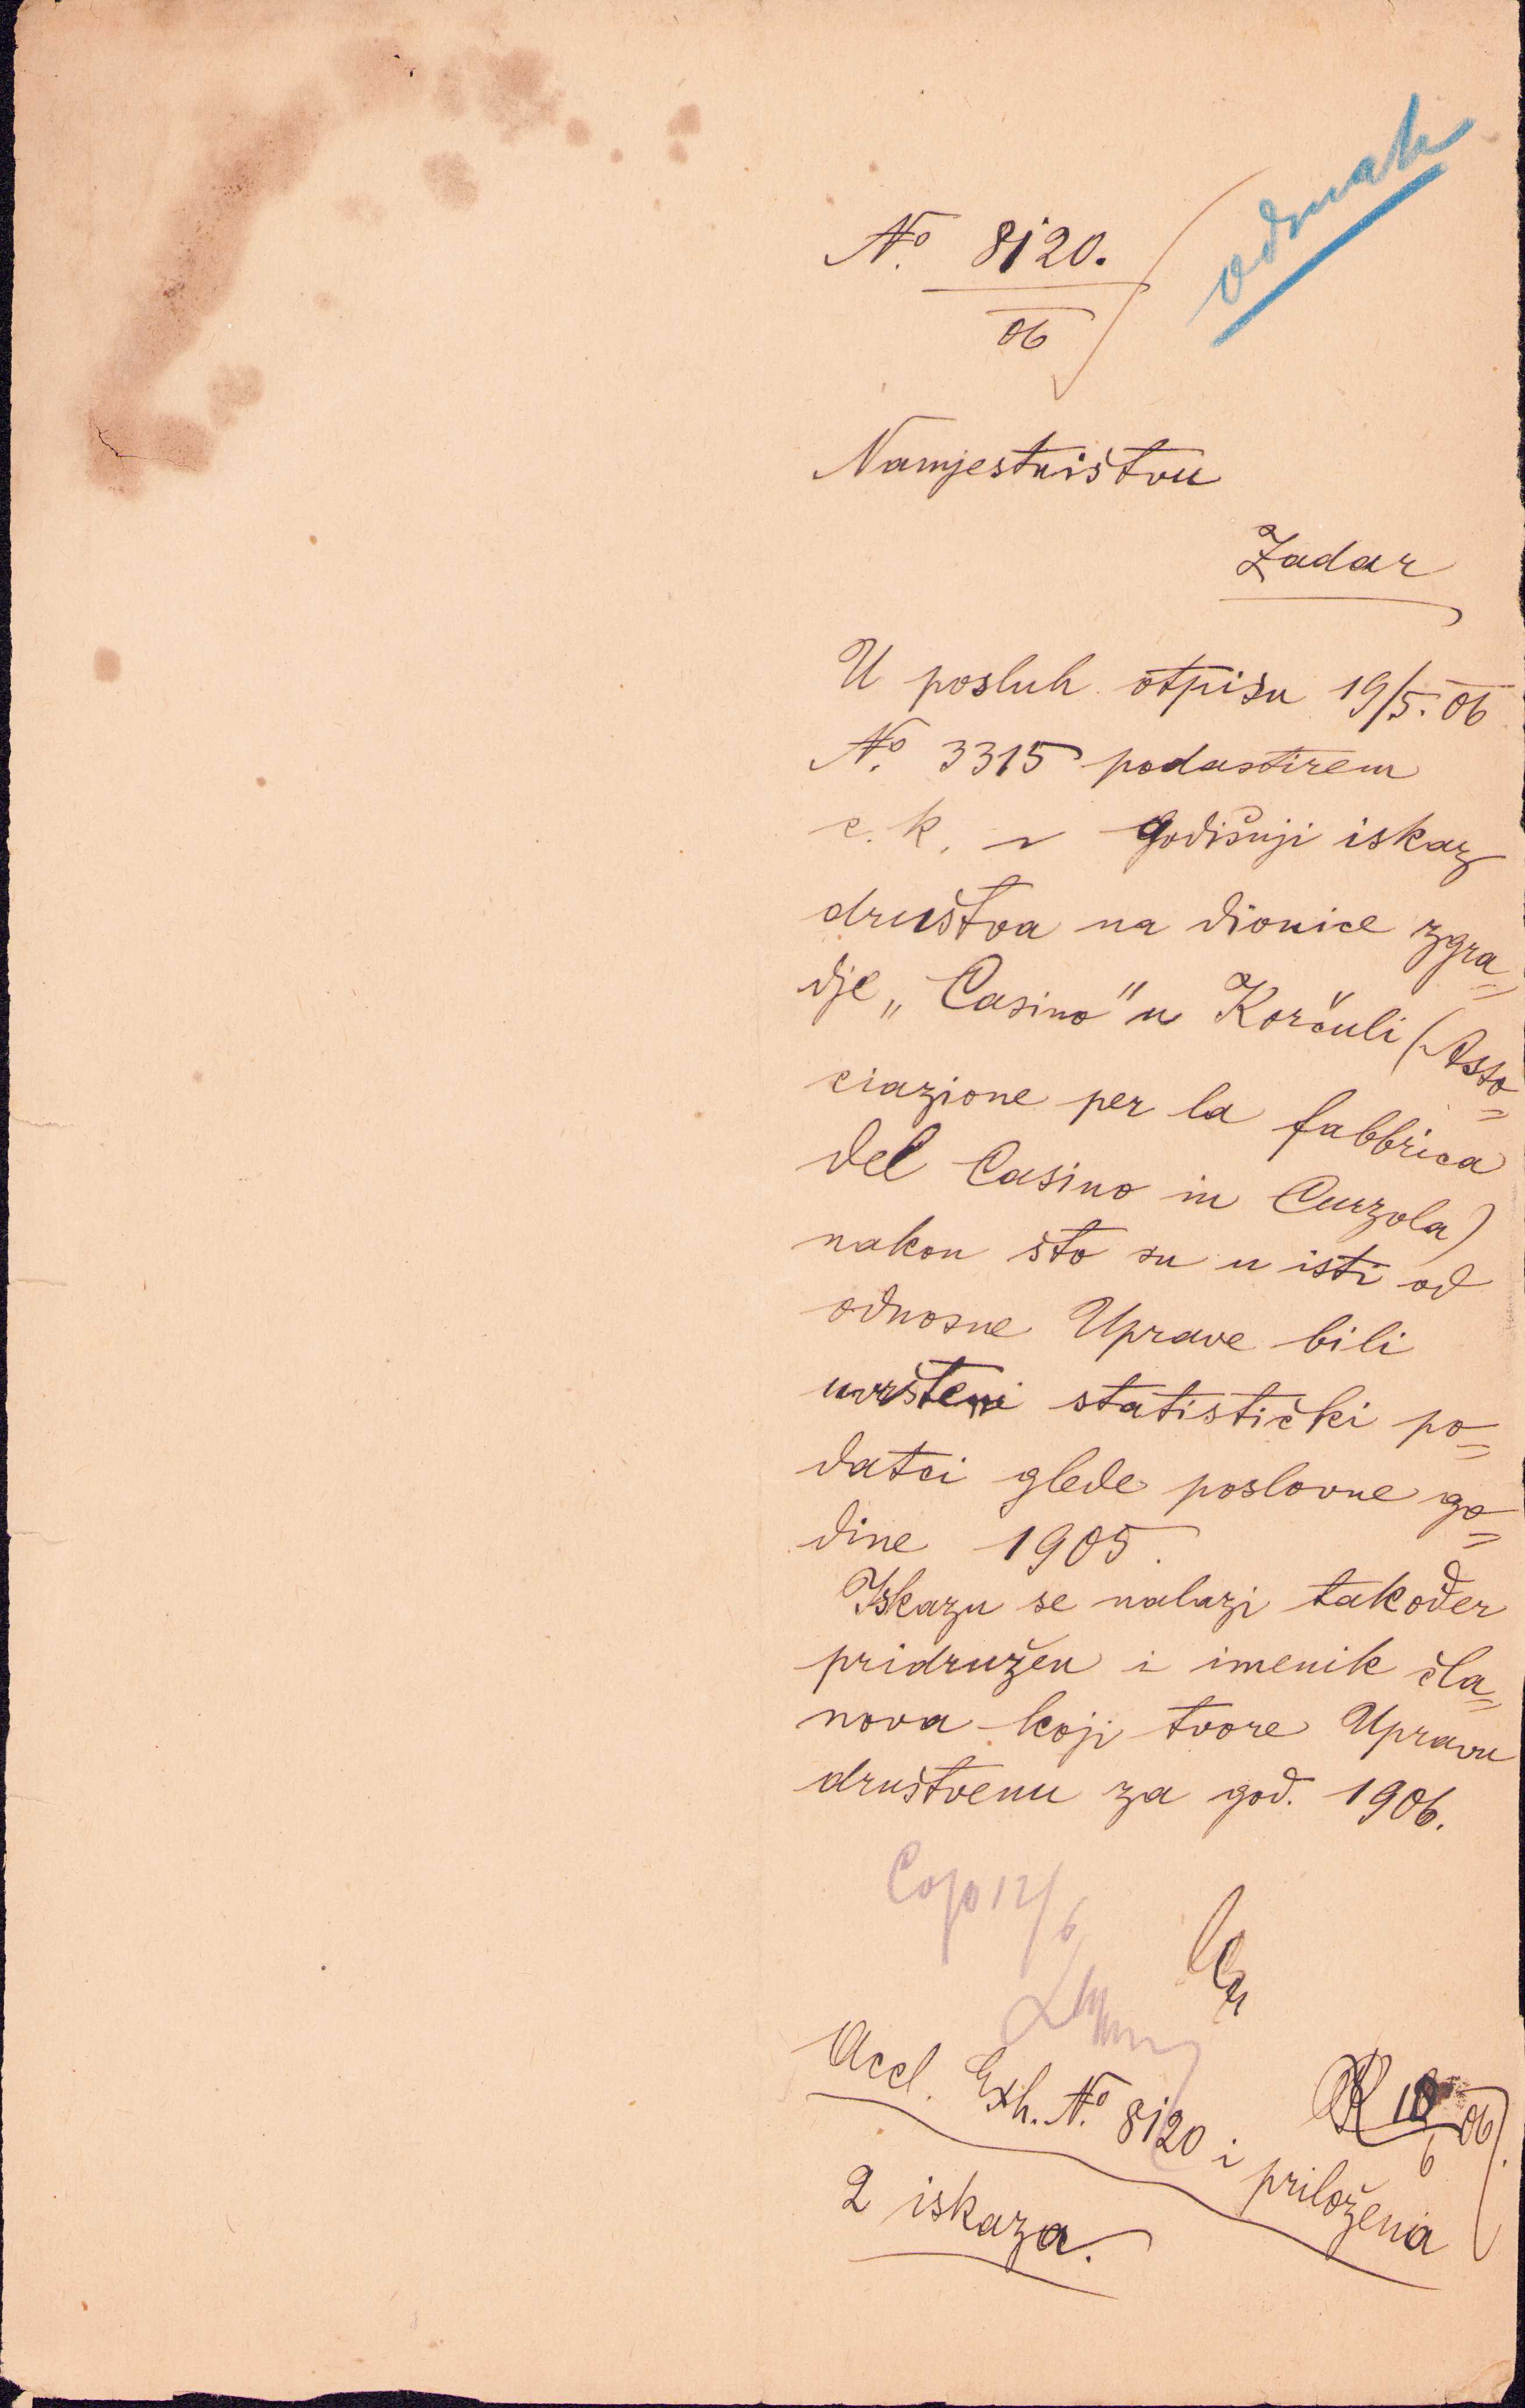 odmah
No. 8120.
06
Namjestništvu
Zadar
U posluh otpisu 19/5. 06
No. 3315 podastirem
c. k. n godišnji iskaz
društva na dionice zgra=
dje „Casino" u Korčuli (Asso=
ciazione per la fabbrica
del Casino in Curzola)
nakon što su u isti od
odnosne Uprave bili
uvršteni statistički po=
datci glede poslovne go=
dine 1905.
Iskazu se nalazi također
pridružen i imenik čla=
nova koji tvore Upravu
društvenu za god. 1906.
Cop 12/6
Accl. Exh. No. 8120 i priložena
2 iskaza.
18/6 06